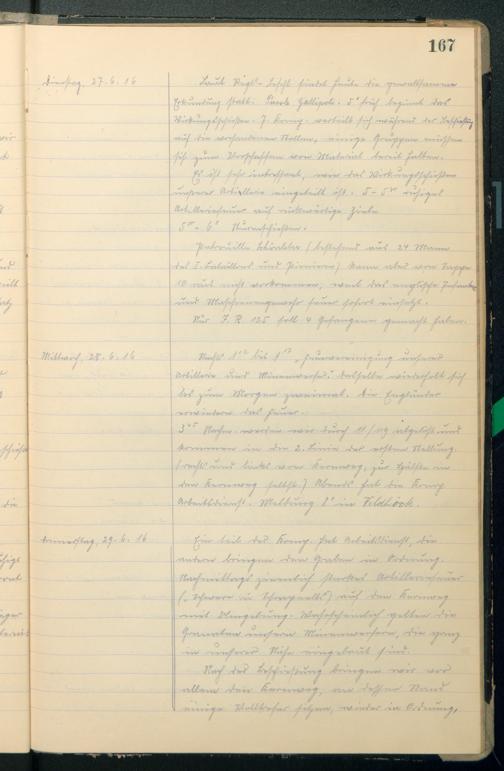 167
Dienstag, 27.6.16
Laut Regts. Befehl findet heute die gewaltsame
Erkundung statt. Parole Gallipoli. 5° früh beginnt das
Wirkungsschießen. 7. Komp. verteilt sich während der Beschießung
auf die vorhandenen Stollen, einige Gruppen müssen
sich zum Vorschaffen von Material bereit halten.
Es ist sehr interessant, wie das Wirkungsschießen
unserer Artillerie eingeteilt ist: 5 - ruhiges
Artilleriefeuer auf rückwärtige Ziele
- 6° Sturmschießen.
Patrouille (bestehend aus 24 Mann
des I. Bataillons und Pionieren) kann aber von Sappe
10 aus nicht vorkommen, weil das englische Infanterie
und Maschinengewehr feuer sofort einsetzt.
Nur I. R. 125 soll 4 Gefangene gemacht haben.
Mittwoch, 28.6.16
Nachts bis Feuervereinigung unserer
Artillerie und Minenwerfer. Dasselbe wiederholt sich
bis zum Morgen zweimal. Die Engländer
erwidern das Feuer.
Nachm. werden wir durch 11/119 abgelöst und
kommen in den 2. Linie der ersten Stellung.
(rechts und links vom Kernweg, zur Hälfte in
den Kernweg selbst.) Abends hat die Komp
Arbeitsdienst. Meldung 8° in Veldhoek.
Donnerstag, 29.6.16
Ein teil der Komp. hat Arbeitsdienst, die
andern bringen den Graben in Ordnung.
Nachmittags ziemlich starkes Artilleriefeuer
(„Schwere u. Schrapnells") auf den Kernweg
mit Umgebung. Wahrscheinlich gelten die
Granaten unsern Minenwerfern, die ganz
in unserer Nähe eingebaut sind.
Nach der Beschießung bringen wir vor
allem den Kernweg, an dessen Rand
einige Volltreffer sitzen, wieder in Ordnung,